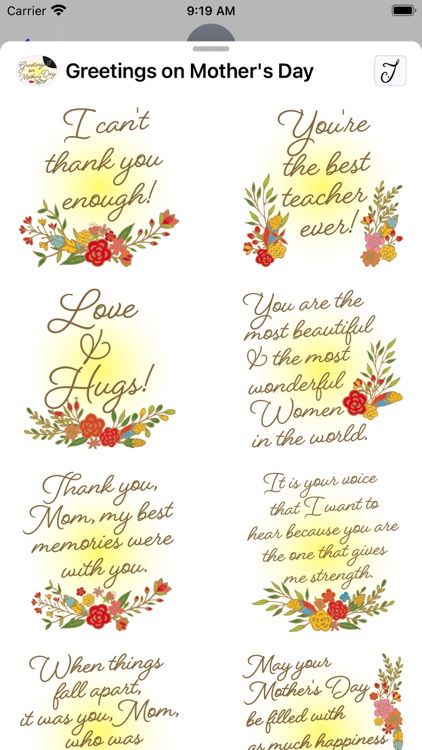 Carrier 9:19 AM
Greetings on Mother's Day
I can't
thank you
enough!
You're
the best
teacher
ever!
Love
&
Hugs!
You are the
most beautiful
& the most
wonderful
Women
in the world.
Thank you,
Mom, my best
memories were
with you.
It is your voice
that I want to
hear because you are
the one that gives
me strength.
When things
fall apart,
it was you, Mom,
who was
May your
Mother's Day
be filled with
as much happiness